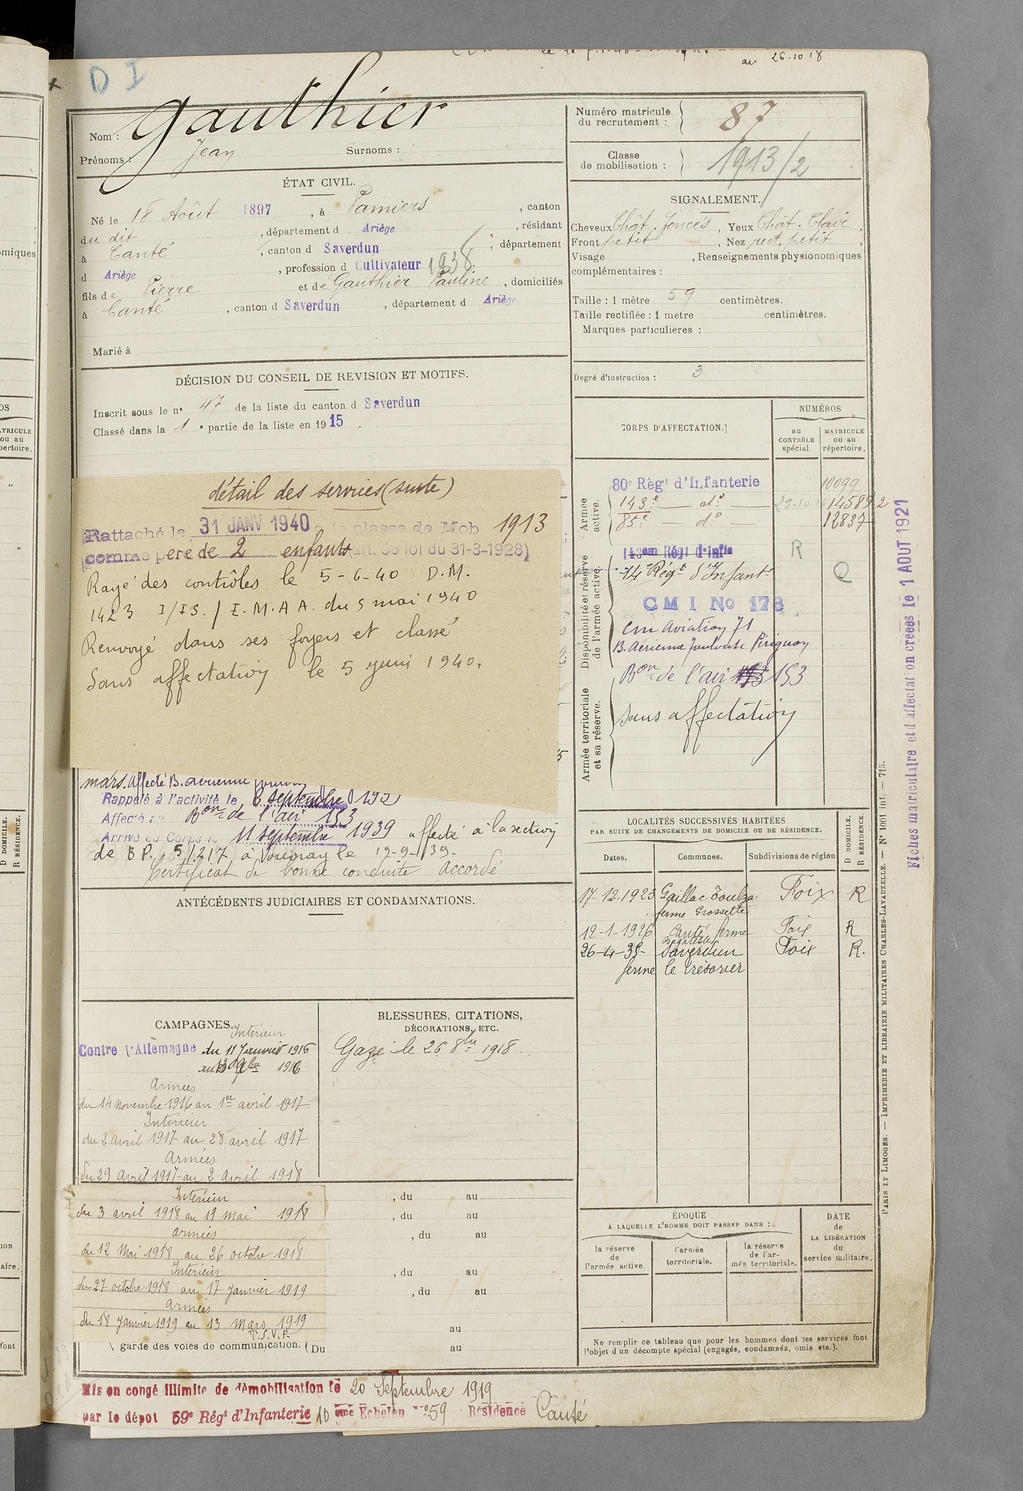 au 26-10-18
D I
Nom : Gauthier
Prénoms : Jean Surnoms :
Numéro matricule du recrutement : 87
Classe de mobilisation : 1913/2
ÉTAT CIVIL.
Né le 18 Août 1897, à Pamiers, canton
du dit, département d Ariège, résidant
à Canté, canton d Saverdun, département
d Ariège, profession d Cultivateur 1938
fils de Pierre et de Gauthier Pauline, domiciliés
à Canté, canton d Saverdun, département d Ariège
Marié à
SIGNALEMENT.
Cheveux Chât. foncés, Yeux Chât. Clair,
Front petit, Nez rect. petit,
Visage , Renseignements physionomiques
complémentaires :
Taille : 1 mètre 59 centimètres.
Taille rectifiée : 1 mètre centimètres.
Marques particulières :
Degré d'instruction : 3
DÉCISION DU CONSEIL DE REVISION ET MOTIFS.
Inscrit sous le n° 47 de la liste du canton d Saverdun
Classé dans la 1e partie de la liste en 1915.
détail des services (suite)
Rattaché le 31 JANV 1940 à la classe de Mob 1913
(comme père de 2 enfants art. 58 loi du 31-3-1928)
Rayé des contrôles le 5-6-40 D.M.
1423 I/IS./E.M.A A. du 5 mai 1940
Renvoyé dans ses foyers et classé
Sans affectation le 5 juin 1940.
mars. Affecté B. aérienne
Rappelé à l'activité le 6 septembre
Affecté au Bon de l'air 153
Arrivé au Corps le 11 septembre 1939 affecté à la section
de B P. 5/217 à le 19-9-39.
Certificat de bonne conduite Accordé
CORPS D'AFFECTATION.
NUMÉROS
AU CONTRÔLE spécial.
MATRICULE ou au répertoire.
Armée active.
80e Régt d'Infanterie 10099
143e do 14589
85e do 12837
Disponibilité et réserve de l'armée active.
143em Régt d'Infie R
14e Régt d'Infant.
C M I No 178
cm Aviation 71
B. Aérienne Toulouse Pérignon
Bon de l'air 153
Armée territoriale et sa réserve.
Sans affectation
Fiches matriculaire et d'affectation créées le 1 AOUT 1921
LOCALITÉS SUCCESSIVES HABITÉES
PAR SUITE DE CHANGEMENTS DE DOMICILE OU DE RÉSIDENCE.
Dates. Communes. Subdivisions de région D DOMICILE. R RÉSIDENCE.
17-12-1923 Gaillac Toulza Foix R
ferme Grossette
12-1-1926 Canté ferme Foix R
26-4-35- Saverdun Foix R.
ferme le trésorier
ANTÉCÉDENTS JUDICIAIRES ET CONDAMNATIONS.
CAMPAGNES.
Intérieur
Contre l'Allemagne du 11 Janvier 1916
au 13 9bre 1916
Armées
du 14 novembre 1916 au 1er avril 1917
Intérieur
du 2 avril 1917 au 28 avril 1917
Armées
du 29 Avril 1917 au 2 avril 1918
Intérieur
du 3 avril 1918 au 11 Mai 1918
armées
du 12 Mai 1918 au 26 octobre 1918
Intérieur
du 27 octobre 1918 au 17 janvier 1919
Armées
du 18 janvier 1919 au 13 Mars 1919
T.S.V.P.
garde des voies de communication. Du au
BLESSURES, CITATIONS,
DÉCORATIONS, ETC.
Gazé le 26 8bre 1918
, du au
, du au
, du au
, du au
, du au
au
ÉPOQUE
A LAQUELLE L'HOMME DOIT PASSER DANS :
la réserve de l'armée active.
l'armée territoriale.
la réserve de l'armée territoriale.
DATE de LA LIBÉRATION du service militaire.
Ne remplir ce tableau que pour les hommes dont les services font
l'objet d'un décompte spécial (engagés, condamnés, omis etc.).
PARIS ET LIMOGES. — IMPRIMERIE ET LIBRAIRIE MILITAIRES CHARLES-LAVAUZELLE. — No 1001 int. — 715.
Mis en congé illimité de démobilisation le 20 Septembre 1919
par le dépôt 59e Régt d'Infanterie 10 ème Echelon No 59 Résidence Canté